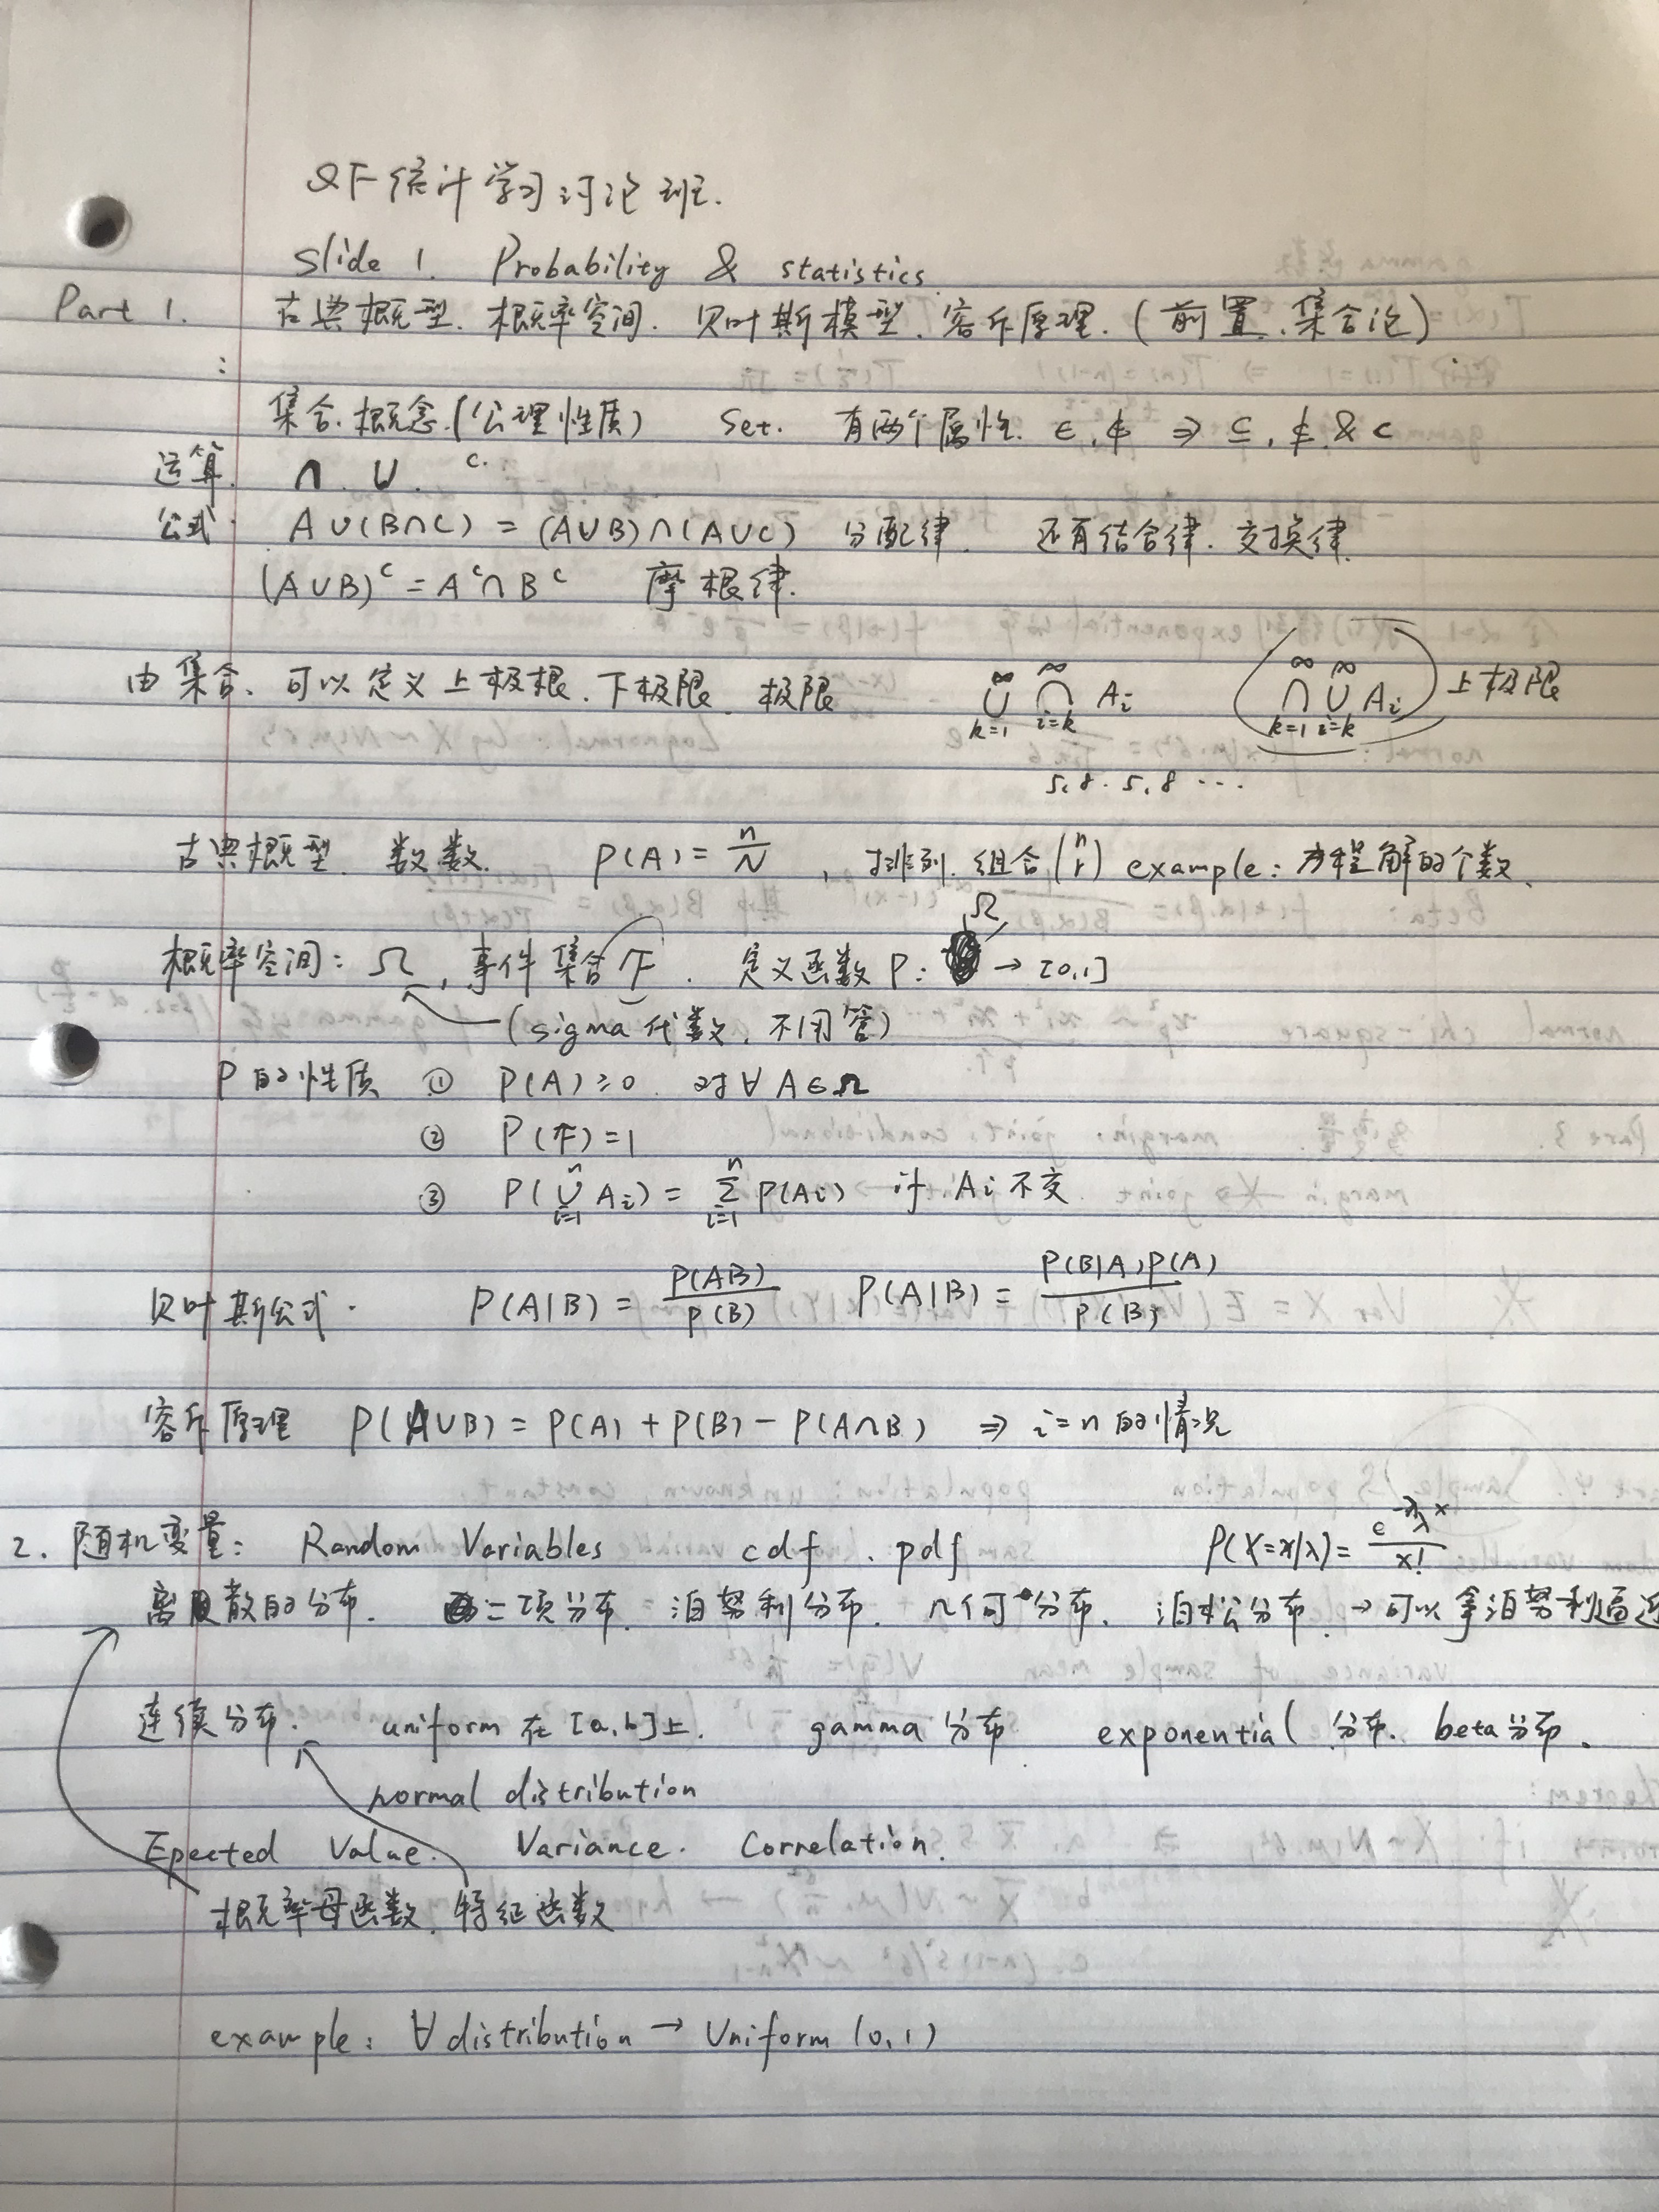 QF统计学习讨论班.
Slide 1. Probability & statistics
Part 1. 古典概型. 概率空间. 贝叶斯模型. 容斥原理. (前置. 集合论)
:
集合. 概念. (公理性质) Set. 有两个属性. ∈, ∉ ⇒ ⊆, ⊄ & ⊂
运算. ∩. ∪. ᶜ.
公式. A∪(B∩C) = (A∪B)∩(A∪C) 分配律. 还有结合律. 交换律.
(A∪B)ᶜ = Aᶜ∩Bᶜ 摩根律.
由集合. 可以定义上极根. 下极限. 极限 ∪_{k=1}^{∞} ∩_{i=k}^{∞} A_i ∩_{k=1}^{∞} ∪_{i=k}^{∞} A_i 上极限
5, 8. 5, 8 ...
古典概型. 数数. P(A) = n/N , 排列. 组合 (n r) example: 方程解的个数.
概率空间: Ω, 事件集合 F. 定义函数 P: Ω → [0,1]
(sigma 代数. 不用管)
P的性质 ① P(A) ≥ 0. 对∀ A∈Ω
② P(F) = 1
③ P(∪_{i=1}^{n} A_i) = Σ_{i=1}^{n} P(A_i) if A_i 不交
贝叶斯公式. P(A|B) = P(AB)/P(B) P(A|B) = P(B|A)P(A)/P(B)
容斥原理 P(A∪B) = P(A) + P(B) - P(A∩B) ⇒ i=n 的情况
2. 随机变量: Random Variables cdf. pdf P(X=x|λ) = e^{-λ}λ^x/x!
离散的分布. 二项分布. 泊努利分布. 几何分布. 泊松分布. → 可以拿泊努利逼近
连续分布. uniform 在 [a,b]上. gamma 分布 exponential 分布. beta分布.
normal distribution
Epected Value. Variance. Correlation.
概率母函数. 特征函数
example: ∀ distribution → Uniform (0,1)